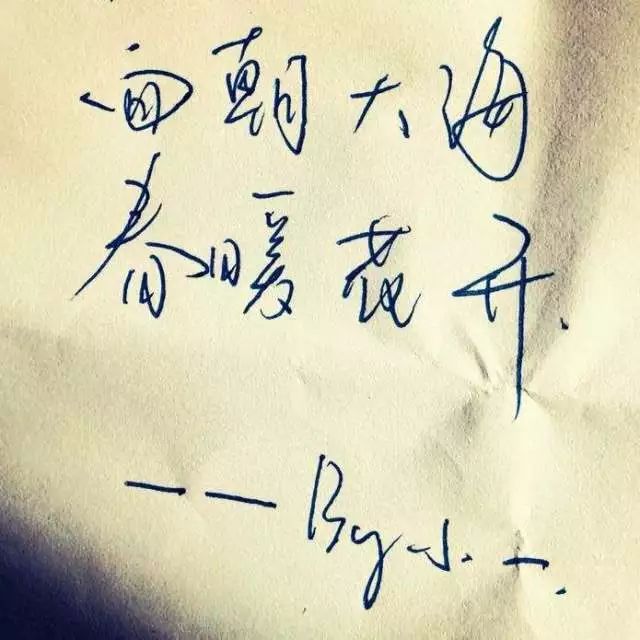 面朝大海
春暖花开.
——By小一.